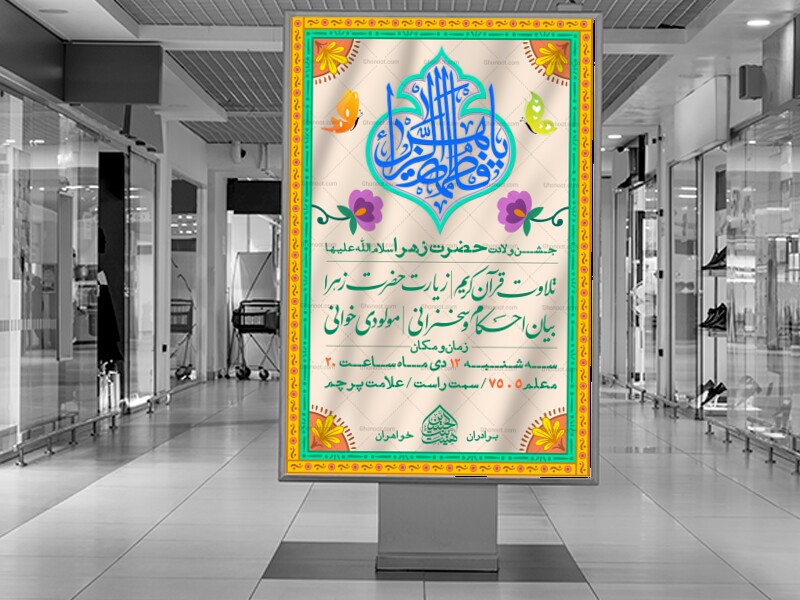 یا فاطمة الزهرا
جشن ولادت حضرت زهرا سلام‌الله‌علیها
تلاوت قرآن کریم | زیارت حضرت زهرا
بیان احکام و سخنرانی | مولودی خوانی
زمان و مکان
سه شنبه ۱۲ دی ماه ساعت ۲۰
معلم ۵ . ۷۵ / سمت راست / علامت پرچم
برادران
خواهران